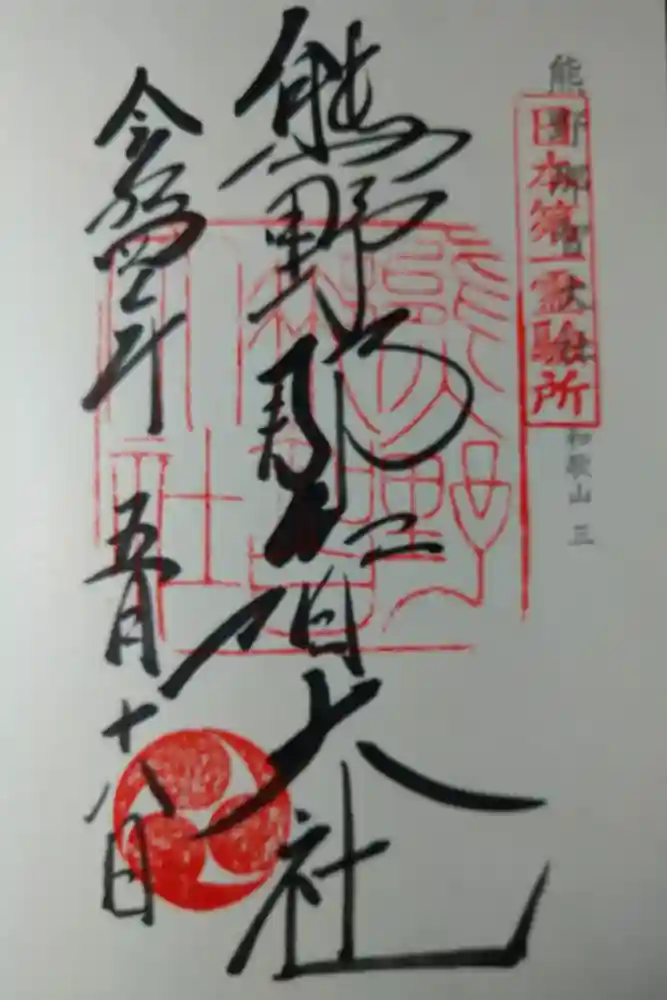 熊野那智大社
日本第一霊験所
和歌山 三
熊野那智大社
令和四年 五月 十八日